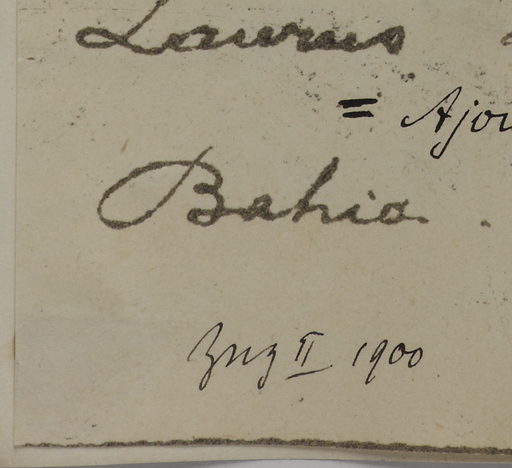 Laurus
= Ajou
Bahia.
II 1900